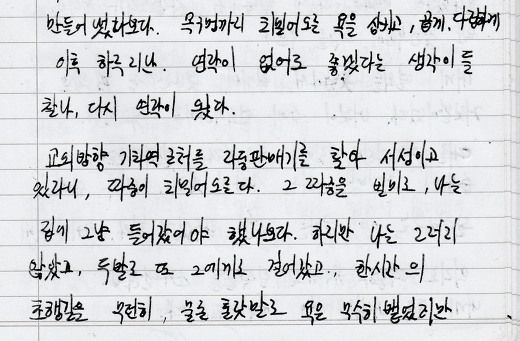 만들어 냈나보다. 목구멍까지 치밀어오르는 욕을 삼키고, 끊게. 다급하게
이후 하루 지난 연락이 없어로 좋겠다는 생각이 들
찰나, 다시 연락이 왔다.
교외방향 기차역 근처를 자동판매기를 찾아 서성이고
있자니, 짜증이 치밀어오른다. 그 짜증을 빌미로, 나는
집에 그냥 들어갔어야 했나보다. 하지만 나는 그러지
않았고, 두발로 또 그에게로 걸어갔고, 한시간의
초행길을 무던히, 물론 혼잣말로 욕은 무수히 뱉었지만